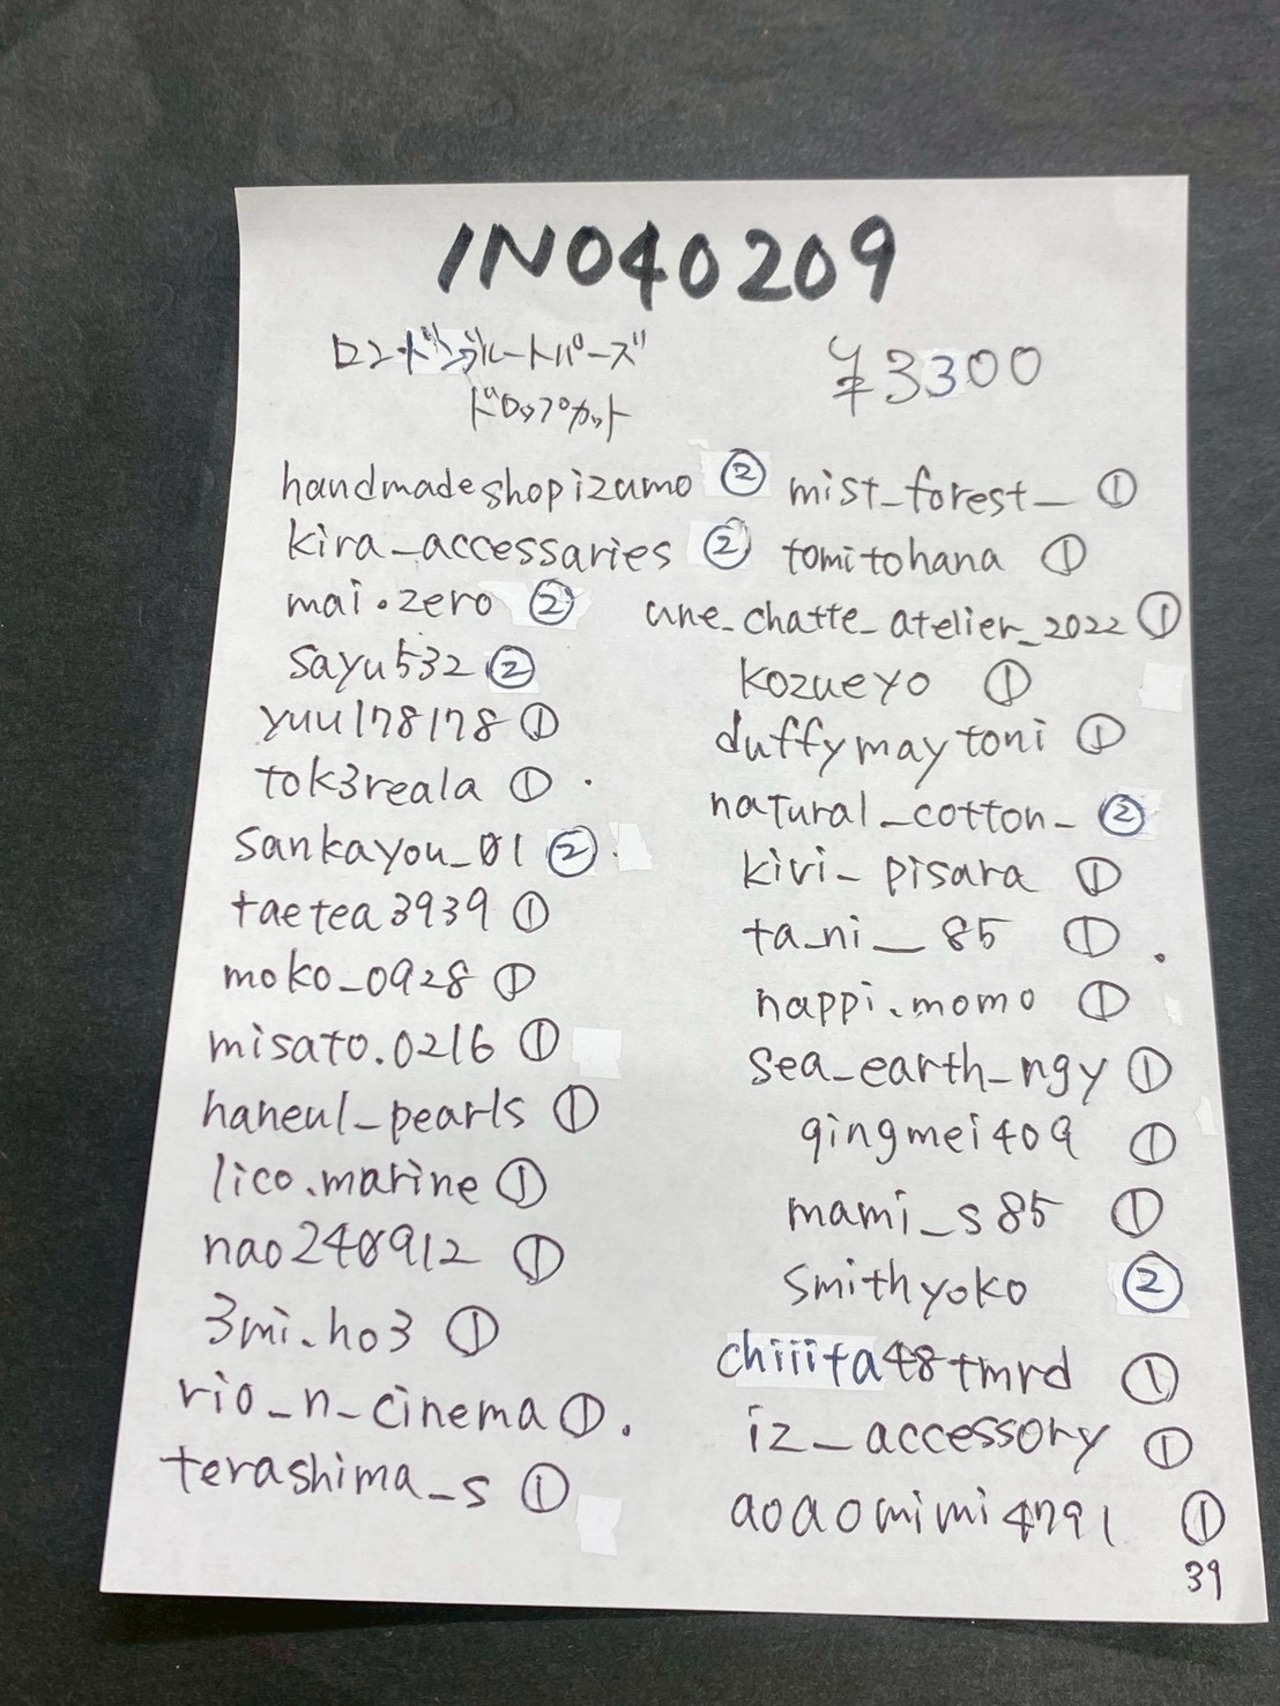 IN040209
ロンドンブルートパーズ
ドロップカット
¥3300
handmadeshopizumo ②
kira_accessaries ②
mai.zero ②
sayu532 ②
yuu178178 ①
tok3reala ①
sankayou_01 ②
taetea3939 ①
moko_0928 ①
misato.0216 ①
haneul_pearls ①
lico.marine ①
nao240912 ①
3mi.ho3 ①
rio_n_cinema ①.
terashima_s ①
mist_forest_ ①
tomitohana ①
une_chatte_atelier_2022 ①
kozueyo ①
duffymaytoni ①
natural_cotton_ ②
kivi_pisara ①
ta_ni__85 ①
nappi.momo ①
sea_earth_ngy ①
qingmei409 ①
mami_s85 ①
smithyoko ②
chiiita48tmrd ①
iz_accessory ①
aoaomimi4791 ①
39